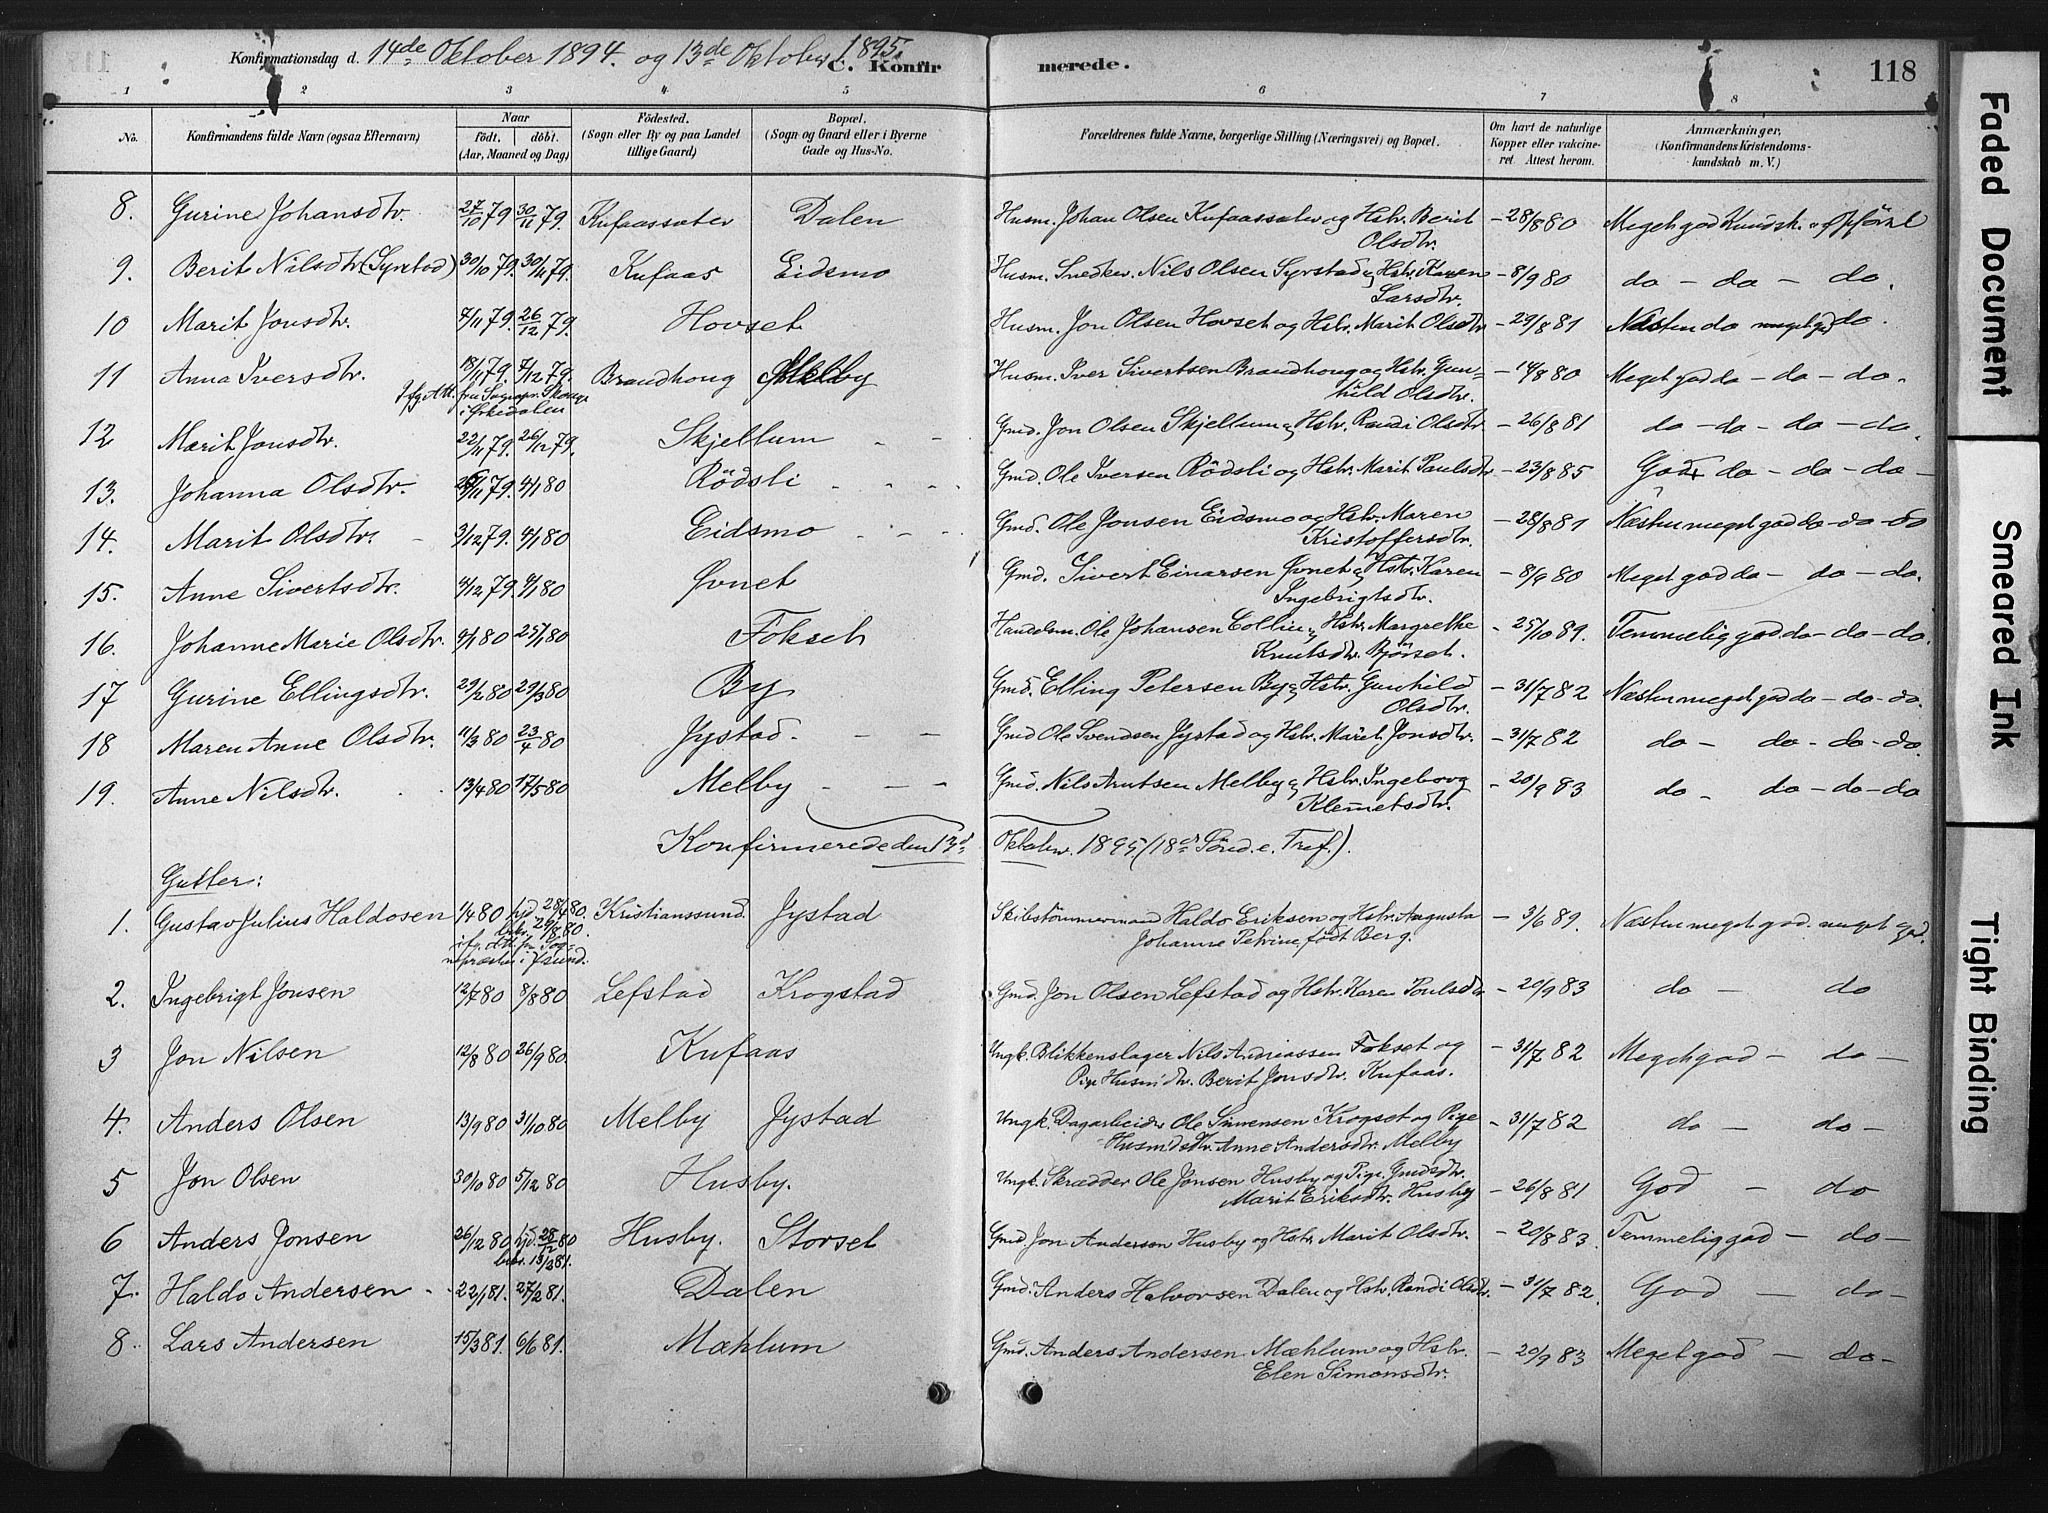 Konfirmationsdag d. 14de Oktober 1894. og 13de Oktober 1895. C. Konfirmerede. 118
1 2 3 4 5 6 7 8
No. Konfirmandens fulde Navn (ogsaa Efternavn) Naar født. døbt. (Aar, Maaned og Dag) Fødested. (Sogn eller By og paa Landet tillige Gaard) Bopæl. (Sogn og Gaard eller i Byerne Gade og Hus-No. Forældrenes fulde Navne, borgerlige Stilling (Næringsvei) og Bopæl. Om havt de naturlige Kopper eller vakcineret. Attest herom. Anmærkninger, (Konfirmandens Kristendomskundskab m. V.)
8. Gurine Johansdtr. 27/10 79 30/11 79. Kufaassæter Dalen Husm. Johan Olsen Kufaassæter og Hstr. Berit Olsdtr. - 28/8 80 Meget god Kundsk. og Opførsel
9. Berit Nilsdtr. (Syrstad) 30/10 79. 30/11 79. Kufaas Eidsmo Husm. Snedker. Nils Olsen Syrstad og Hstr. Karen Larsdtr. - 8/9 80 do - do - do.
10 Marit Jonsdtr. 4/11 79. 26/12 79. Hovset Husm. Jon Olsen Hovset og Hstr. Marit Olsdtr - 29/8 81 Næsten do meget god do.
11 Anna Iversdtr. 18/11 79. 7/12 79. Brandhoug Melby Husm. Iver Sivertsen Brandhoug og Hstr. Gunhild Olsdtr. - 14/8 80 Meget god do - do - do.
Ifg. Att. fra Sognepr. Skouge i Ørkedalen
12 Marit Jonsdtr. 22/11 79. 26/12 79. Skjellum - - Gmd. Jon Olsen Skjellum og Hstr. Randi Olsdtr - 26/8 81 do - do - do - do.
13. Johanna Olsdtr. 26/11 79. 4/1 80 Rödsli - - - - Gmd. Ole Iversen Rödsli og Hstr. Marit Paulsdtr. - 23/8 85 God do - do - do -
14. Marit Olsdtr. - 3/12 79. 4/1 80 Eidsmo - - - Gmd. Ole Jonsen Eidsmo og Hstr. Maren Kristoffersdtr. - 28/8 81 Næsten meget god do - do - do
15. Anne Sivertsdtr. 4/12 79 4/1 80 Øvnet Gmd. Sivert Einarsen Øvnet og Hstr. Karen Ingebrigtsdtr. - 8/9 80 Meget god do - do - do.
16. Johanne Marie Olsdtr. 9/1 80 25/1 80 Fökset Handelsm. Ole Johansen Collin og Hstr. Margrethe Knutsdtr. Bjørset. - 25/10 89. Temmelig god do - do - do.
17 Gurine Ellingsdtr. 29/2 80 29/3 80 By Gmd. Elling Petersen By og Hstr. Gunhild Olsdtr. - 31/7 82 Næsten meget god do - do - do.
18 Maren Anne Olsdtr. 11/3 80 23/4 80 Jystad. - - Gmd Ole Svendsen Jystad og Hstr. Marit Jonsdtr. - 31/7 82 do - do - do - do.
19. Anne Nilsdtr. 13/4 80 17/5 80 Melby - - - Gmd. Nils Knutsen Melby og Hstr. Ingeborg Klemetsdtr. - 20/9 83 do - do - do - do
Konfirmerede den 13d Oktober. 1895. (18de Sönd. e. Tref.).
Gutter:
1. Gustav Julius Haldosen 1/4 80 hjd. 28/4 80. bekr. 29/8 80. Kristianssund. Jystad Skibstømmermand Haldo Eriksen og Hstr. Augusta Johanne Petrine født Berg. - 3/6 89. Næsten meget god. meget god.
ifg. Att. fra Sognepræsten i Xsund.
2. Ingebrigt Jonsen 12/7 80 8/8 80 Lefstad Krogstad Gmd. Jon Olsen Lefstad og Hstr. Karen Poulsdtr - 20/9 83 do - do
3 Jon Nilsen 12/8 80 26/9 80. Kufaas Ungk. Blikkenslager Nils Andreassen Fökset og Pige Husmdtr. Berit Jonsdtr. Kufaas. - 31/7 82 Meget god - do -
4. Anders Olsen 13/9 80 31/10 80 Melby Jystad Ungk. Dagarbeider Ole Simensen Krogset og Pige Husmdsdtr. Anne Andersdtr. Melby - 31/7 82 do - do -
5 Jon Olsen 30/10 80 5/12 80 Husby. Ungk. Skrædder Ole Jonsen Husby og Pige Gmdsdtr. Marit Eriksdtr. Husby - 26/8 81 God - do
6 Anders Jonsen 26/12 80 hjd. 28/12 80 bekr. 13/3 81. Husby. Storset Gmd Jon Andersen Husby og Hstr. Marit Olsdtr. - 20/8 83. Temmelig god - do -
7. Haldo Andersen - 22/1 81. 27/2 81. Dalen Gmd. Anders Halvorsen Dalen og Hstr. Randi Olsdtr. - 31/7 82. God - do -
8. Lars Andersen 15/3 81. 6/6 81. Mæhlum Gmd. Anders Andersen Mæhlum og Hstr. Elen Simonsdtr. - 20/9 83 Meget god - do -
Faded Document
Smeared Ink
Tight Binding